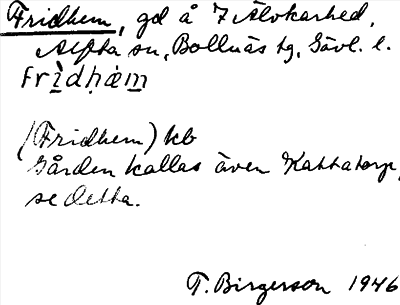 Fridhem, gd å 7 Älvkarhed,
Alfta sn, Bollnäs tg, Gävl. l.
frìdḥèm
(Fridhem) kb
Gården kallas även Kattatorp,
se detta.
T. Birgerson 1946